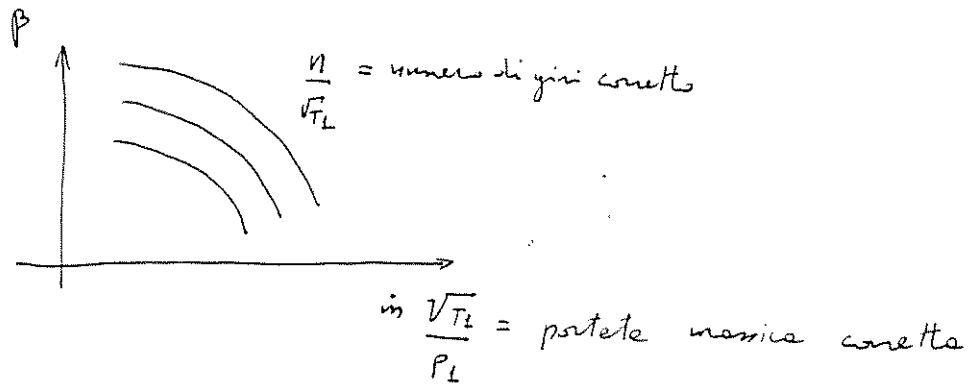 β
n/√T1 = numero di giri corretto
ṁ √T1/P1 = portata massica corretta